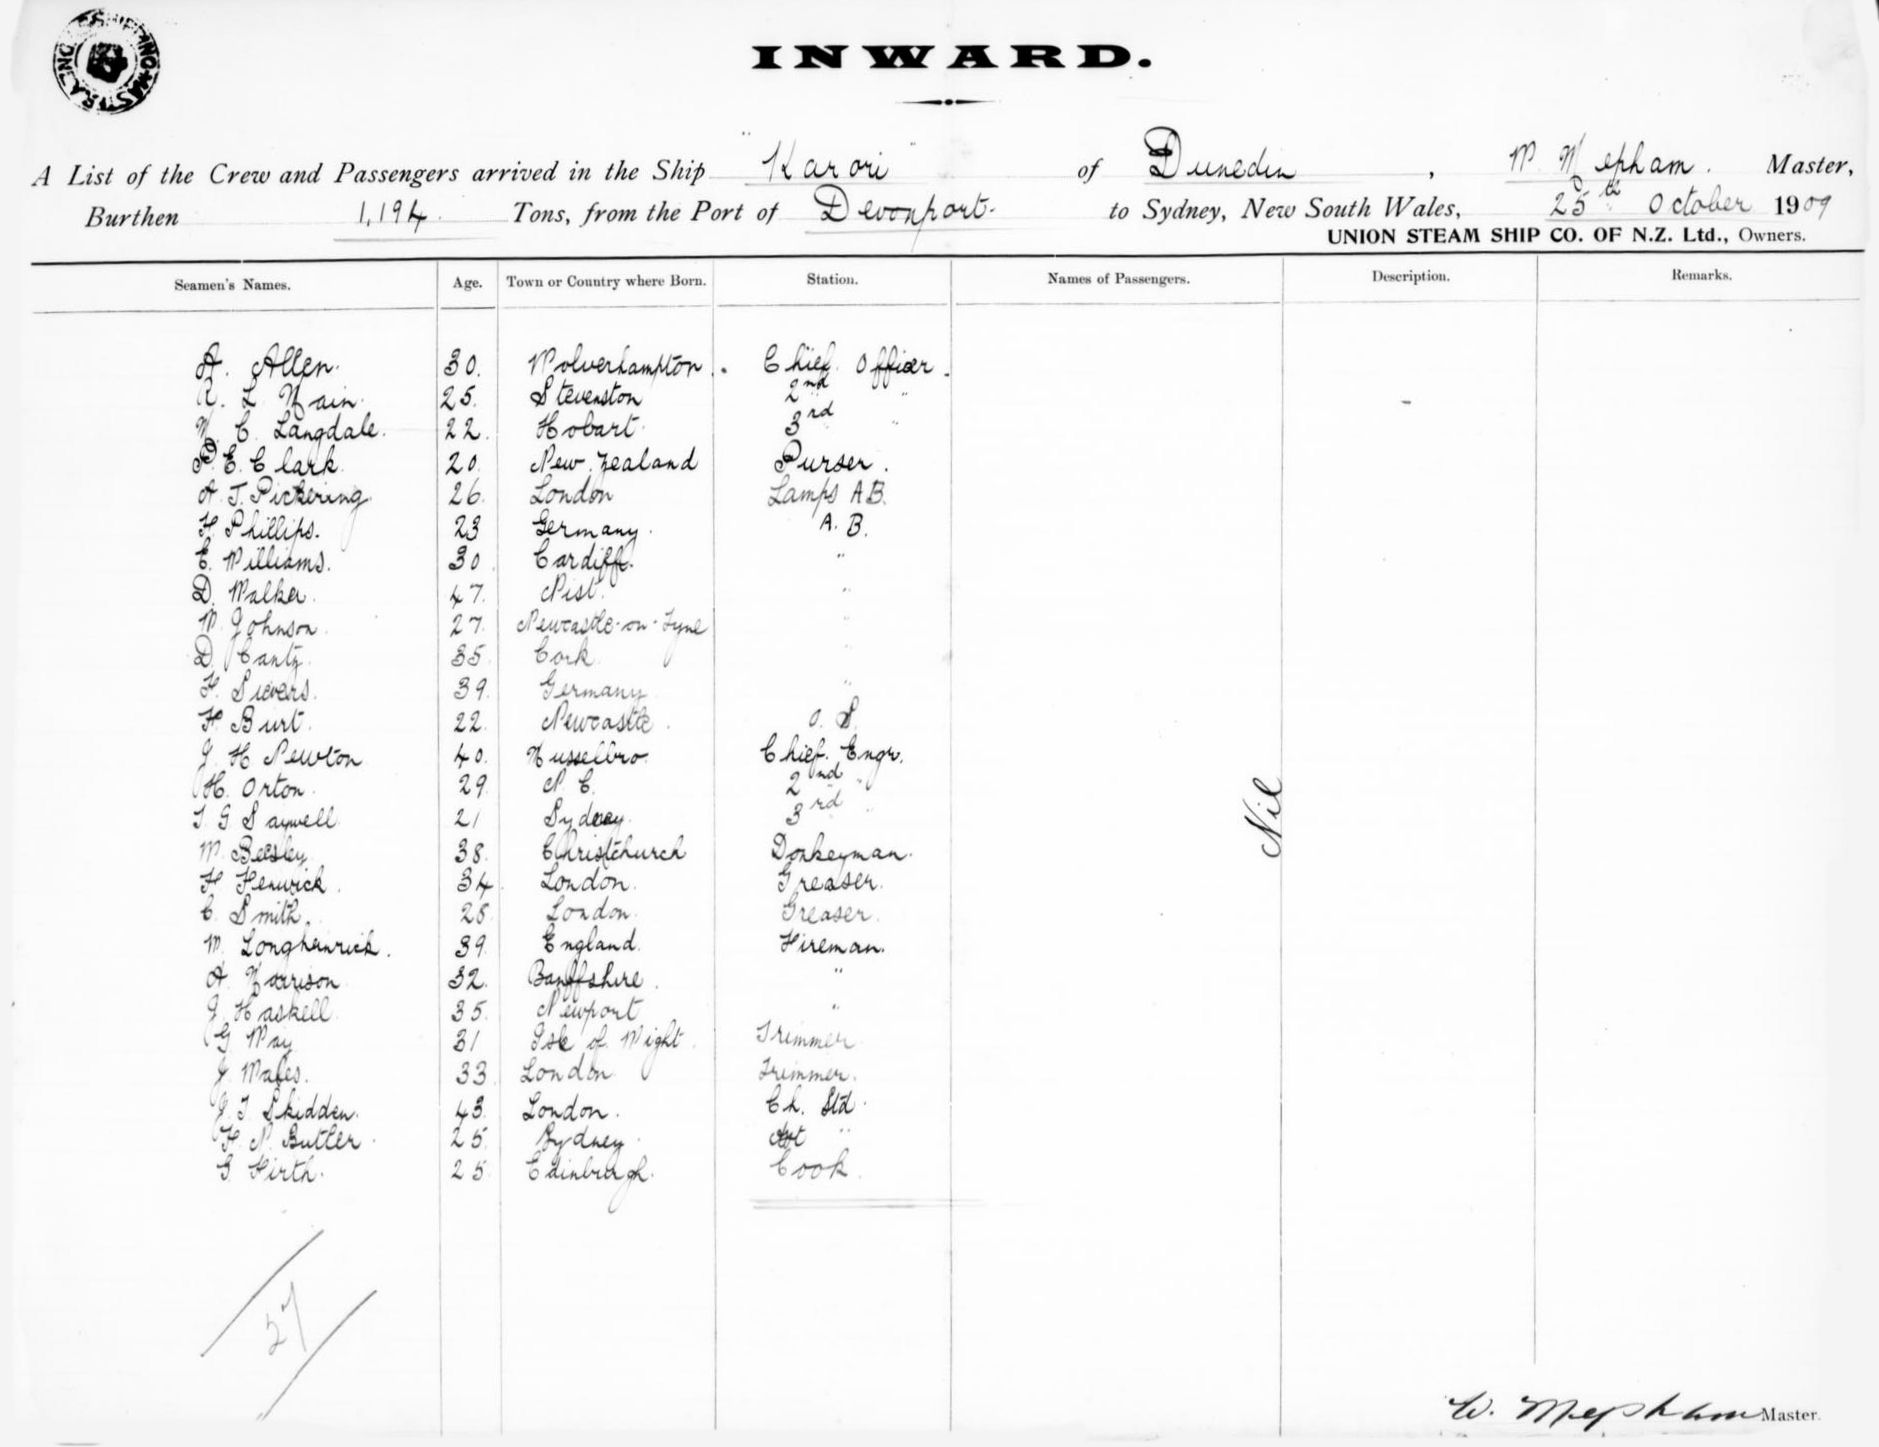 SHIPPING MASTER
INWARD.
A List of the Crew and Passengers arrived in the Ship "Karori" of Dunedin, W. Mepham. Master,
Burthen 1,194. Tons, from the Port of Devonport. to Sydney, New South Wales, 25th October 1909
UNION STEAM SHIP CO. OF N.Z. Ltd., Owners.
Seamen's Names. Age. Town or Country where Born. Station. Names of Passengers. Description. Remarks.
A. Allen. 30. Wolverhampton. Chief Officer.
R. L. Main. 25. Stevenston 2nd "
W. C. Langdale. 22. Hobart. 3rd "
P. E. Clark. 20. New Zealand Purser.
A. J. Pickering. 26. London Lamps A.B.
H Phillips. 23 Germany. A. B.
E. Williams. 30. Cardiff. "
D. Walker. 47. "
W. Johnson. 27. Newcastle-on-Tyne "
D. Canty. 35. Cork. "
H. Sievers. 39. Germany "
H Burt. 22. Newcastle. O. S.
J. H Newton 40. Musselbro. Chief. Engr.
H. Orton. 29. 2nd "
T. G Saywell 21 Sydney. 3rd "
W. Beesley 38. Christchurch Donkeyman.
H Fenwick. 34. London. Greaser.
C. Smith. 28. London. Greaser.
W. Longheinrich. 39. England. Fireman.
A. Morrison 32. Banffshire. "
J. Haskell. 35. Newport "
G. May 31 Isle of Wight. Trimmer
J. 33 London Trimmer.
J. T Skidden. 43. London. Ch. Std.
H. N. Butler. 25. Sydney. "
G Firth. 25. Edinburgh. Cook.
Nil
27
W. Mepham Master.